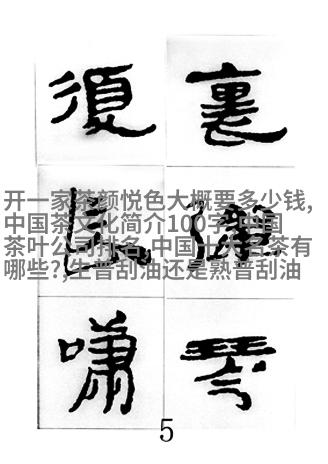 裏彈琴
復長嘯
开一家茶颜悦色大概要多少钱,
中国茶文化简介100字,中国
茶叶公司排名,中国十大名茶有
哪些?,生普刮油还是熟普刮油
5